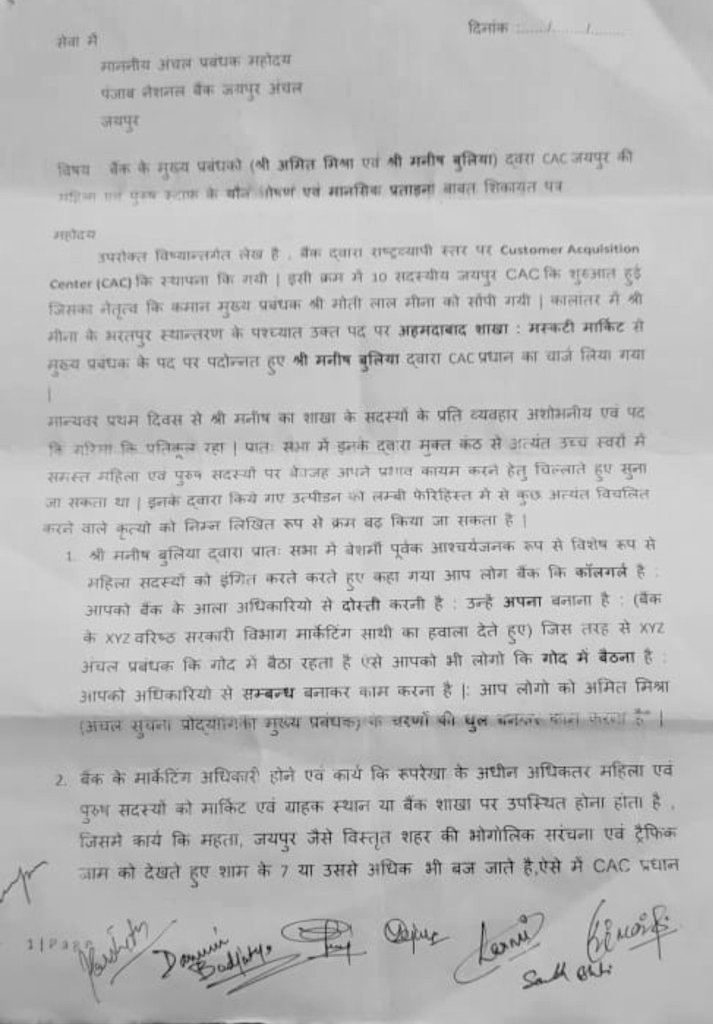 दिनांक :....../......./.......
सेवा में
माननीय अंचल प्रबंधक महोदय
पंजाब नेशनल बैंक जयपुर अंचल
जयपुर
विषय बैंक के मुख्य प्रबंधको (श्री अमित मिश्रा एवं श्री मनीष बुलिया) द्वरा CAC जयपुर की
महिला एवं पुरुष स्टाफ के यौन शोषण एवं मानसिक प्रताड़ना बाबत शिकायत पत्र
महोदय
उपरोक्त विष्यान्तर्गत लेख है , बैंक द्वारा राष्ट्रव्यापी स्तर पर Customer Acquisition
Center (CAC) कि स्थापना कि गयी | इसी क्रम में 10 सदस्यीय जयपुर CAC कि शुरुआत हुई
जिसका नेतृत्व कि कमान मुख्य प्रबंधक श्री मोती लाल मीना को सौंपी गयी | कालांतर में श्री
मीना के भरतपुर स्थान्तरण के पश्च्यात उक्त पद पर अहमदाबाद शाखा : मस्कटी मार्किट से
मुख्य प्रबंधक के पद पर पदोन्नत हुए श्री मनीष बुलिया द्वारा CAC प्रधान का चार्ज लिया गया
|
मान्यवर प्रथम दिवस से श्री मनीष का शाखा के सदस्यों के प्रति व्यवहार अशोभनीय एवं पद
कि गरिमा कि प्रतिकूल रहा | प्रातः सभा में इनके द्वारा मुक्त कंठ से अत्यंत उच्च स्वरों में
समस्त महिला एवं पुरुष सदस्यों पर बेवजह अपने प्रभाव कायम करने हेतु चिल्लाते हुए सुना
जा सकता था | इनके द्वारा किये गए उत्पीडन की लम्बी फेरिहिस्त में से कुछ अत्यंत विचलित
करने वाले कृत्यो को निम्न लिखित रूप से क्रम बद्ध किया जा सकता है |
1. श्री मनीष बुलिया द्वारा प्रातः सभा में बेशर्मी पूर्वक आश्चर्यजनक रूप से विशेष रूप से
महिला सदस्यों को इंगित करते करते हुए कहा गया आप लोग बैंक कि कॉलगर्ल है :
आपको बैंक के आला अधिकारियो से दोस्ती करनी है : उन्हें अपना बनाना है : (बैंक
के XYZ वरिष्ठ सरकारी विभाग मार्केटिंग साथी का हवाला देते हुए) जिस तरह से XYZ
अंचल प्रबंधक कि गोद में बैठा रहता है ऐसे आपको भी लोगो कि गोद में बैठना है :
आपको अधिकारियो से सम्बन्ध बनाकर काम करना है |: आप लोगो को अमित मिश्रा
(अंचल सुचना प्रोद्योगिकी मुख्य प्रबंधक) के चरणों की धुल बनकर काम करना है" |
2. बैंक के मार्केटिंग अधिकारी होने एवं कार्य कि रूपरेखा के अधीन अधिकतर महिला एवं
पुरुष सदस्यों को मार्किट एवं ग्राहक स्थान या बैंक शाखा पर उपस्थित होना होता है ,
जिसमे कार्य कि महता, जयपुर जैसे विस्तृत शहर की भोगोलिक सरंचना एवं ट्रैफिक
जाम को देखते हुए शाम के 7 या उससे अधिक भी बज जाते है,ऐसे में CAC प्रधान
1 | Page